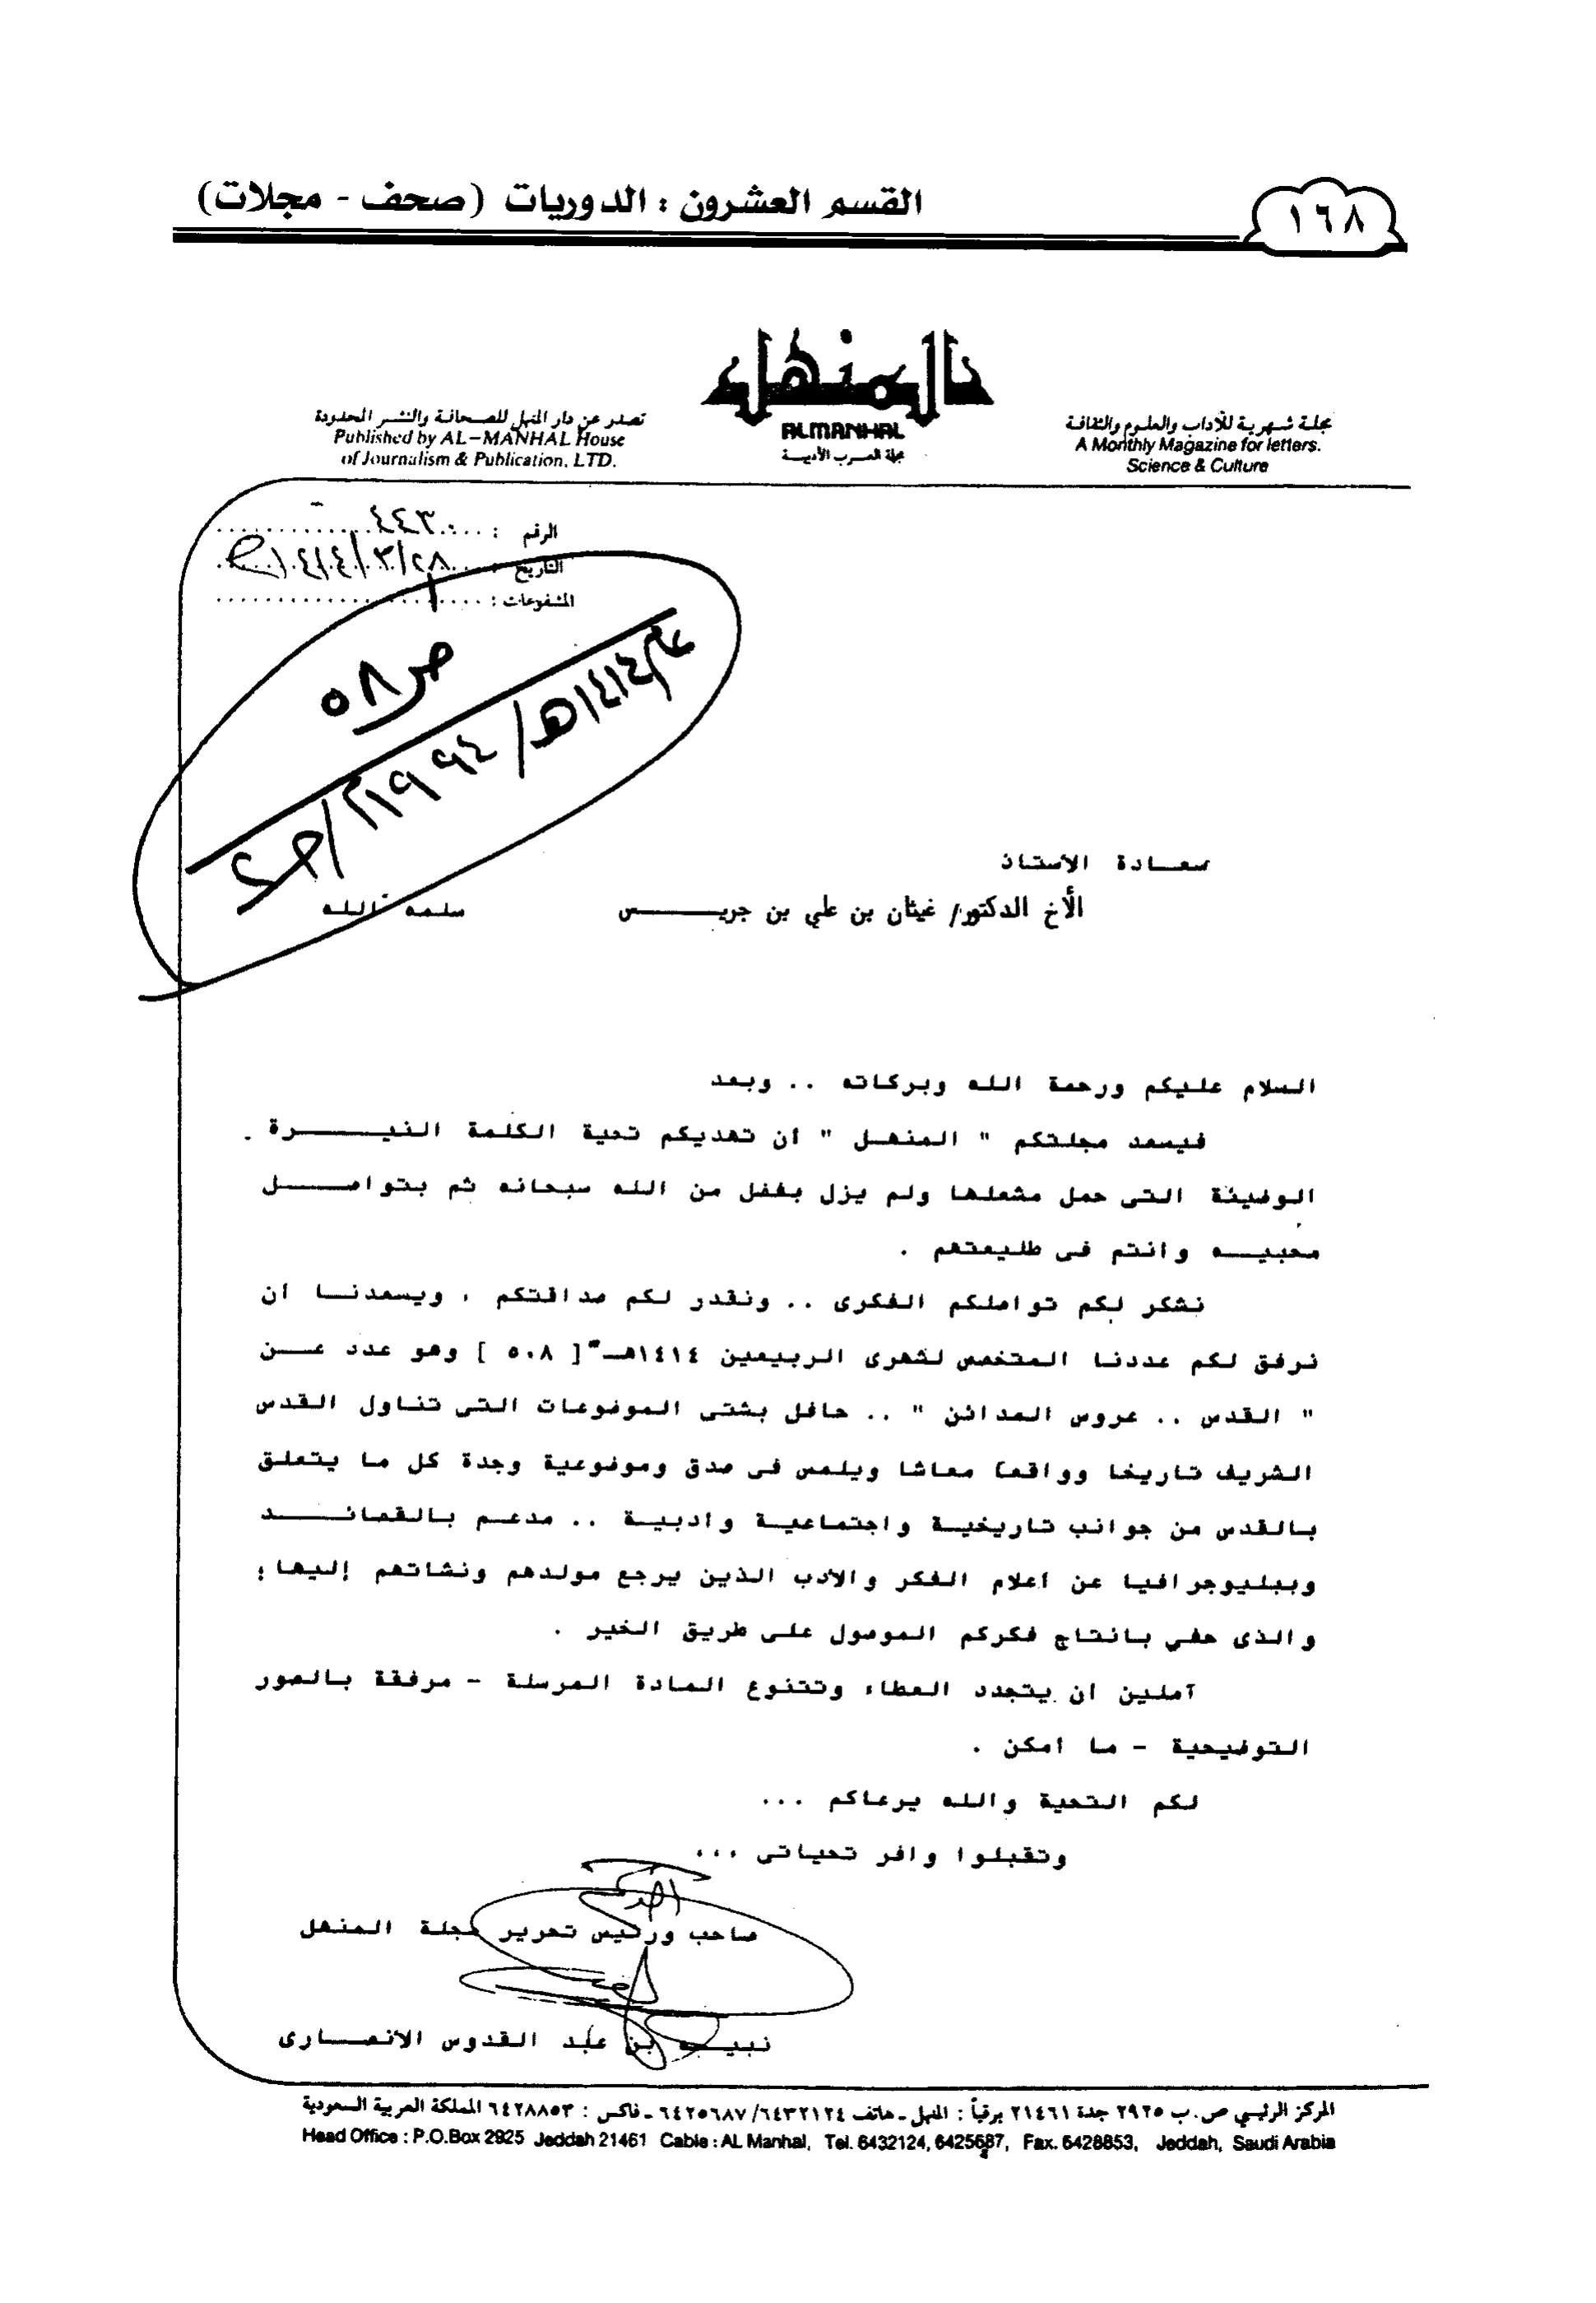 ١٦٨
القسم العشرون : الدوريات (صحف - مجلات)
المنهل
ALMANHAL
مجلة العرب الأدبية
مجلة شهرية للآداب والعلوم والثقافة
A Monthly Magazine for letters.
Science & Culture
تصدر عن دار المنهل للصحافة والنشر المحدودة
Published by AL-MANHAL House
of Journalism & Publication, LTD.
الرقم : ٤٤٣٠
التاريخ : ٢٨/٣/١٤١٤هـ
المشفوعات :
ص٥٨
عام١٤١٤هـ/١٩٩٤م
سعادة الاستاذ
الأخ الدكتور/ غيثان بن علي بن جريس سلمه الله
السلام عليكم ورحمة الله وبركاته .. وبعد
فيسعد مجلتكم " المنهل " أن تهديكم تحية الكلمة النيرة
الوضيئة التى حمل مشعلها ولم يزل بفضل من الله سبحانه ثم بتواصل
محبيه وانتم فى طليعتهم .
نشكر لكم تواصلكم الفكرى .. ونقدر لكم صداقتكم ، ويسعدنا ان
نرفق لكم عددنا المتخصص لشهرى الربيعين ١٤١٤هـ [ ٥٠٨ ] وهو عدد عن
" القدس .. عروس المدائن " .. حافل بشتى الموضوعات التى تناول القدس
الشريف تاريخا وواقعا معاشا ويلمس فى صدق وموضوعية وجدة كل ما يتعلق
بالقدس من جوانب تاريخية واجتماعية وادبية .. مدعم بالقصائد
وببليوجرافيا عن أعلام الفكر والأدب الذين يرجع مولدهم ونشاتهم إليها ؛
والذى حفي بانتاج فكركم الموصول على طريق الخير .
آملين ان يتجدد العطاء وتتنوع المادة المرسلة - مرفقة بالصور
التوضيحية - ما أمكن .
لكم التحية والله يرعاكم ...
وتقبلوا وافر تحياتى ...
صاحب ورئيس تحرير مجلة المنهل
نبيه بن عبد القدوس الانصارى
المركز الرئيسي ص.ب ٢٩٢٥ جدة ٢١٤٦١ برقياً : المنهل ـ هاتف ٦٤٣٢١٢٤/ ٦٤٢٥٦٨٧ ـ فاكس : ٦٤٢٨٨٥٣ المملكة العربية السعودية
Head Office : P.O.Box 2925 Jeddah 21461 Cable : AL Manhal, Tel. 6432124, 6425687, Fax. 6428853, Jeddah, Saudi Arabia